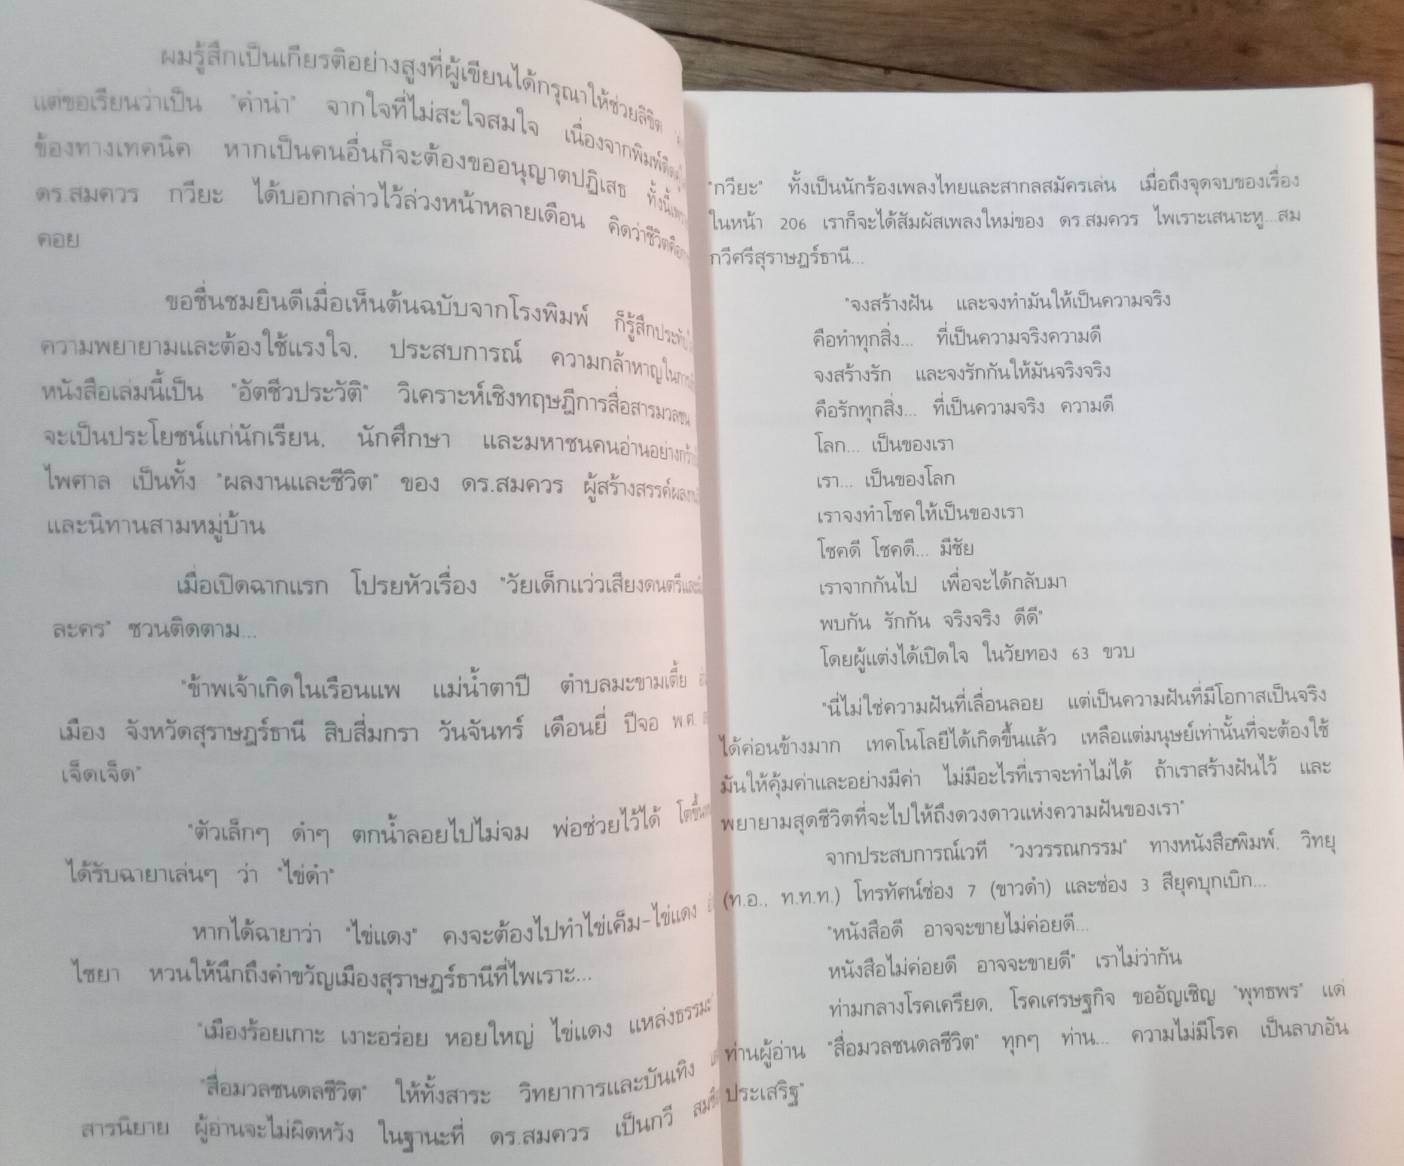 ผมรู้สึกเป็นเกียรติอย่างสูงที่ผู้เขียนได้กรุณาให้ช่วยลิขิต
แต่ขอเรียนว่าเป็น "คำนำ" จากใจที่ไม่สะใจสมใจ เนื่องจากพิมพ์
ข้องทางเทคนิค หากเป็นคนอื่นก็จะต้องขออนุญาตปฏิเสธ ทั้งนี้
ดร.สมควร กวียะ ได้บอกกล่าวไว้ล่วงหน้าหลายเดือน คิดว่าชีวิตคือการ
คอย
ขอชื่นชมยินดีเมื่อเห็นต้นฉบับจากโรงพิมพ์ ก็รู้สึกประทับใจ
ความพยายามและต้องใช้แรงใจ, ประสบการณ์ ความกล้าหาญในการ
หนังสือเล่มนี้เป็น "อัตชีวประวัติ" วิเคราะห์เชิงทฤษฎีการสื่อสารมวลชน
จะเป็นประโยชน์แก่นักเรียน, นักศึกษา และมหาชนคนอ่านอย่างกว้าง
ไพศาล เป็นทั้ง "ผลงานและชีวิต" ของ ดร.สมควร ผู้สร้างสรรค์ผลงาน
และนิทานสามหมู่บ้าน
เมื่อเปิดฉากแรก โปรยหัวเรื่อง "วัยเด็กแว่วเสียงดนตรีและ
ละคร" ชวนติดตาม...
"ข้าพเจ้าเกิดในเรือนแพ แม่น้ำตาปี ตำบลมะขามเตี้ย
เมือง จังหวัดสุราษฎร์ธานี สิบสี่มกรา วันจันทร์ เดือนยี่ ปีจอ พ.ศ.
เจ็ดเจ็ด"
"ตัวเล็กๆ ดำๆ ตกน้ำลอยไปไม่จม พ่อช่วยไว้ได้ โตขึ้น
ได้รับฉายาเล่นๆ ว่า "ไข่ดำ"
หากได้ฉายาว่า "ไข่แดง" คงจะต้องไปทำไข่เค็ม-ไข่แดง
ไชยา หวนให้นึกถึงคำขวัญเมืองสุราษฎร์ธานีที่ไพเราะ...
"เมืองร้อยเกาะ เงาะอร่อย หอยใหญ่ ไข่แดง แหล่งธรรมะ"
"สื่อมวลชนดลชีวิต" ให้ทั้งสาระ วิทยาการและบันเทิง
สารนิยาย ผู้อ่านจะไม่ผิดหวัง ในฐานะที่ ดร.สมควร เป็นกวี
"กวียะ" ทั้งเป็นนักร้องเพลงไทยและสากลสมัครเล่น เมื่อถึงจุดจบของเรื่อง
ในหน้า 206 เราก็จะได้สัมผัสเพลงใหม่ของ ดร.สมควร ไพเราะเสนาะหู...สม
กวีศรีสุราษฎร์ธานี...
"จงสร้างฝัน และจงทำมันให้เป็นความจริง
คือทำทุกสิ่ง... ที่เป็นความจริงความดี
จงสร้างรัก และจงรักกันให้มันจริงจริง
คือรักทุกสิ่ง... ที่เป็นความจริง ความดี
โลก... เป็นของเรา
เรา... เป็นของโลก
เราจงทำโชคให้เป็นของเรา
โชคดี โชคดี... มีชัย
เราจากกันไป เพื่อจะได้กลับมา
พบกัน รักกัน จริงจริง ดีดี"
โดยผู้แต่งได้เปิดใจ ในวัยทอง 63 ขวบ
"นี่ไม่ใช่ความฝันที่เลื่อนลอย แต่เป็นความฝันที่มีโอกาสเป็นจริง
ได้ค่อนข้างมาก เทคโนโลยีได้เกิดขึ้นแล้ว เหลือแต่มนุษย์เท่านั้นที่จะต้องใช้
มันให้คุ้มค่าและอย่างมีค่า ไม่มีอะไรที่เราจะทำไม่ได้ ถ้าเราสร้างฝันไว้ และ
พยายามสุดชีวิตที่จะไปให้ถึงดวงดาวแห่งความฝันของเรา"
จากประสบการณ์เวที "วงวรรณกรรม" ทางหนังสือพิมพ์, วิทยุ
(ท.อ., ท.ท.ท.) โทรทัศน์ช่อง 7 (ขาวดำ) และช่อง 3 สียุคบุกเบิก...
"หนังสือดี อาจจะขายไม่ค่อยดี...
หนังสือไม่ค่อยดี อาจจะขายดี" เราไม่ว่ากัน
ท่ามกลางโรคเครียด, โรคเศรษฐกิจ ขออัญเชิญ "พุทธพร" แด่
ท่านผู้อ่าน "สื่อมวลชนดลชีวิต" ทุกๆ ท่าน... ความไม่มีโรค เป็นลาภอัน
ประเสริฐ"